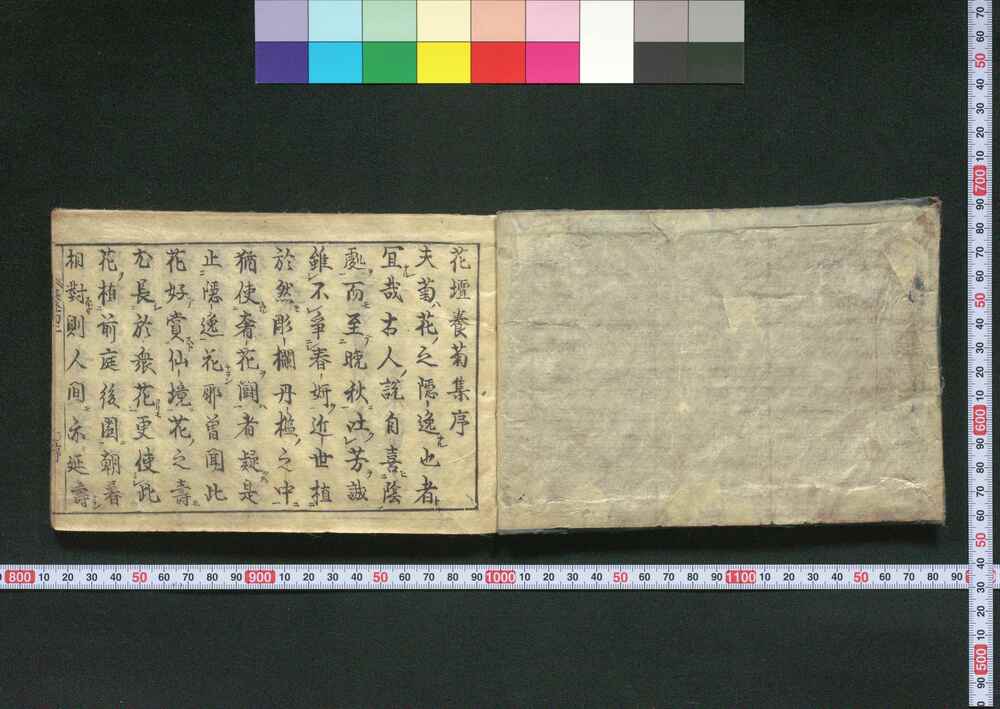 花壇養菊集序
夫菊花之隠逸也者
宜哉古人説自喜陰
處而至晩秋吐芳誠
雖不爭春妍近世植
於然彫欄丹檻之中
猶使奢花闘者疑是
止隠逸花耶曽聞此
花好賞仙境花之壽
尤長於衆花更使此
花植前庭後園朝暮
相對則人間亦延壽
800 10 20 30 40 50 60 70 80 90 900 10 20 30 40 50 60 70 80 90 1000 10 20 30 40 50 60 70 80 90 1100 10 20 30 40 50 60 70 80 90
70 60 50 40 30 20 10 700 90 80 70 60 50 40 30 20 10 600 90 80 70 60 50 40 30 20 10 500 90